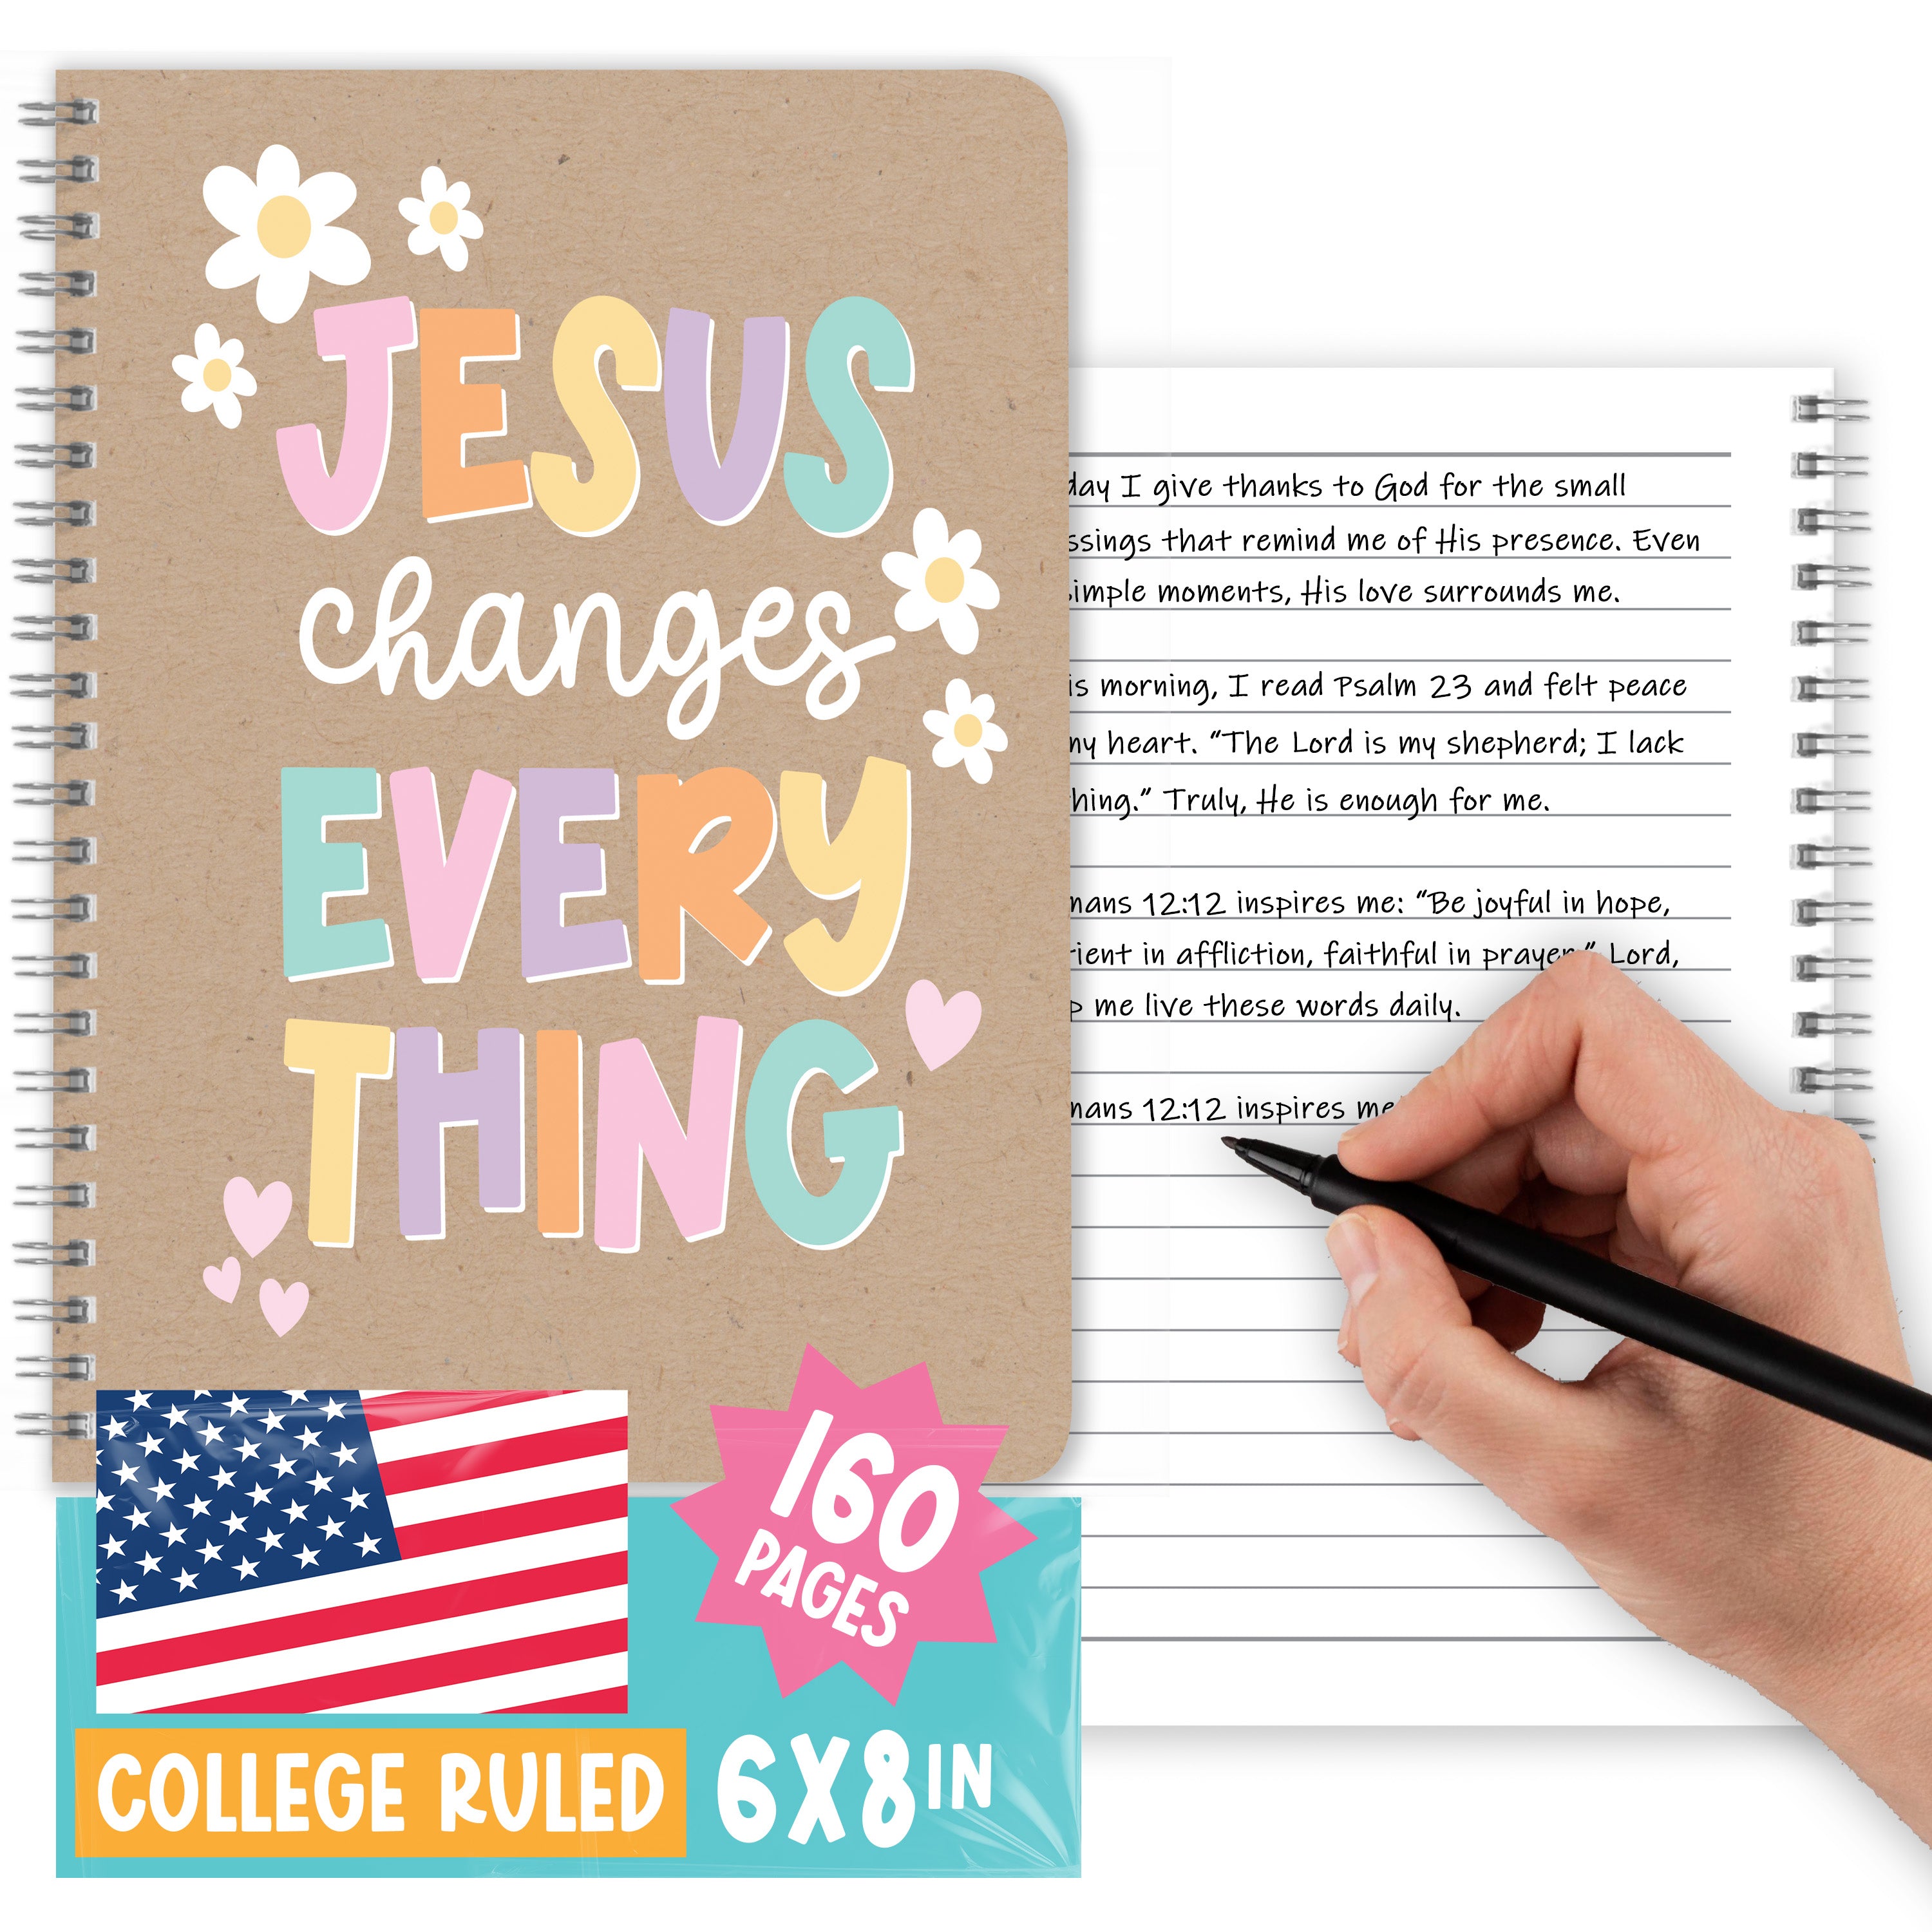 JESUS
changes
EVERY
THING
160
PAGES
COLLEGE RULED
6X8 IN
day I give thanks to God for the small
ssings that remind me of His presence. Even
imple moments, His love surrounds me.
is morning, I read Psalm 23 and felt peace
my heart. “The Lord is my shepherd; I lack
hing.” Truly, He is enough for me.
mans 12:12 inspires me: “Be joyful in hope,
tient in affliction, faithful in prayer.” Lord,
p me live these words daily.
mans 12:12 inspires me